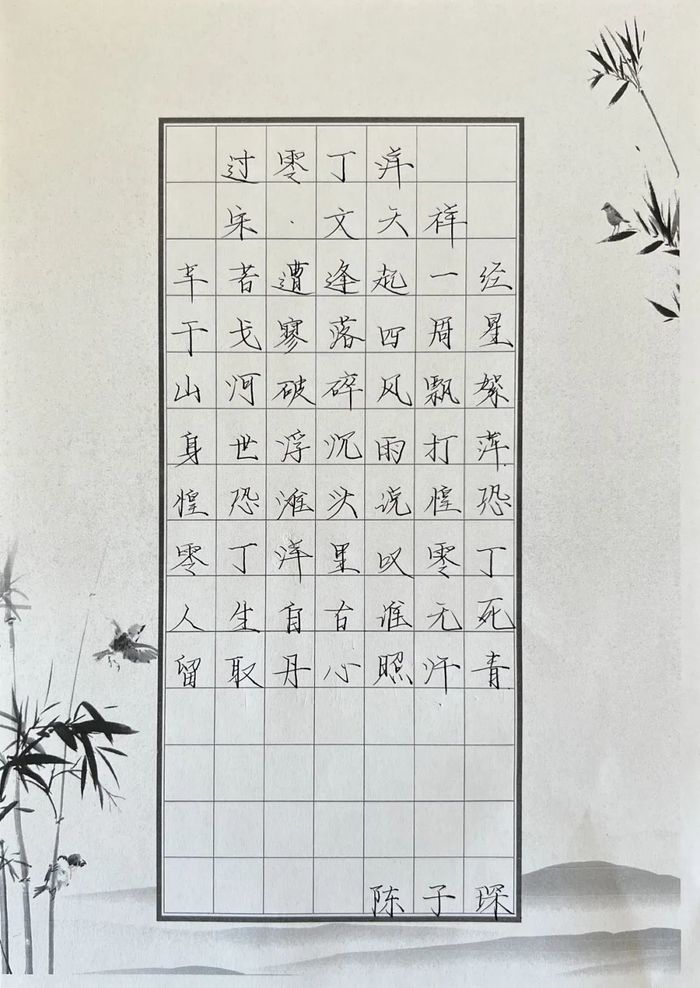 过零丁洋
宋·文天祥
辛苦遭逢起一经
干戈寥落四周星
山河破碎风飘絮
身世浮沉雨打萍
惶恐滩头说惶恐
零丁洋里叹零丁
人生自古谁无死
留取丹心照汗青
陈子琛